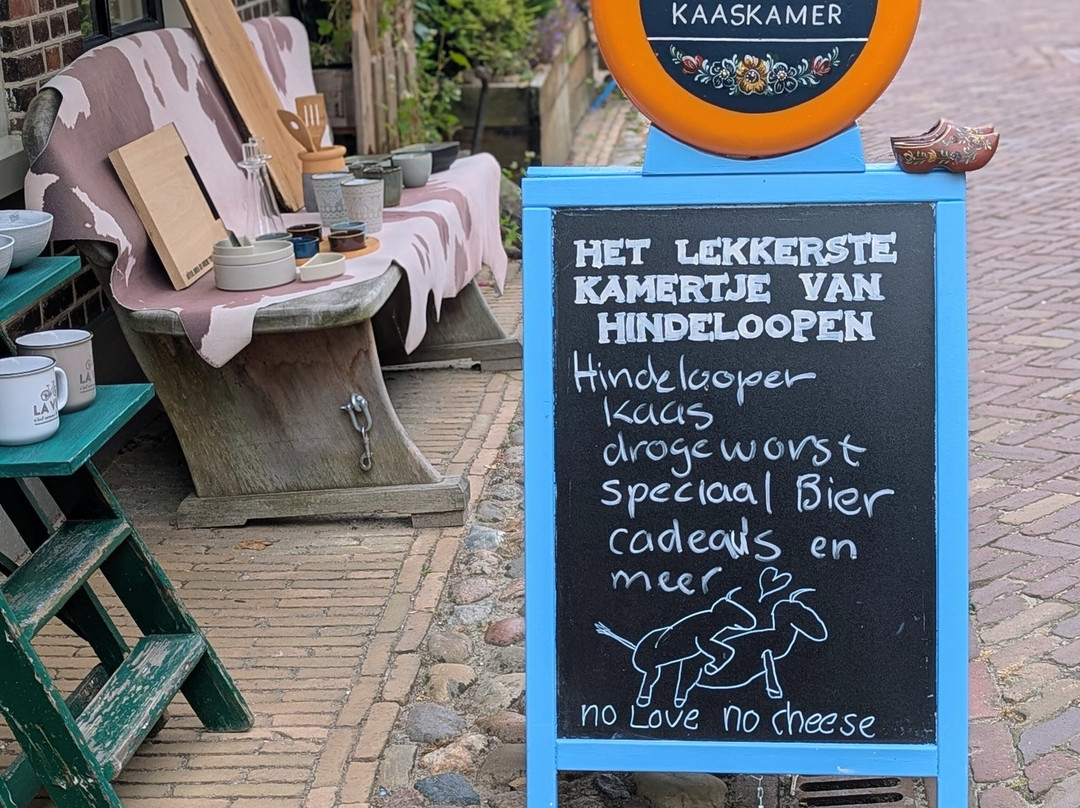 KAASKAMER
HET LEKKERSTE
KAMERTJE VAN
HINDELOOPEN
Hindelooper
kaas
droge worst
speciaal Bier
cadeaus en
meer
no Love no cheese
LA V
LA